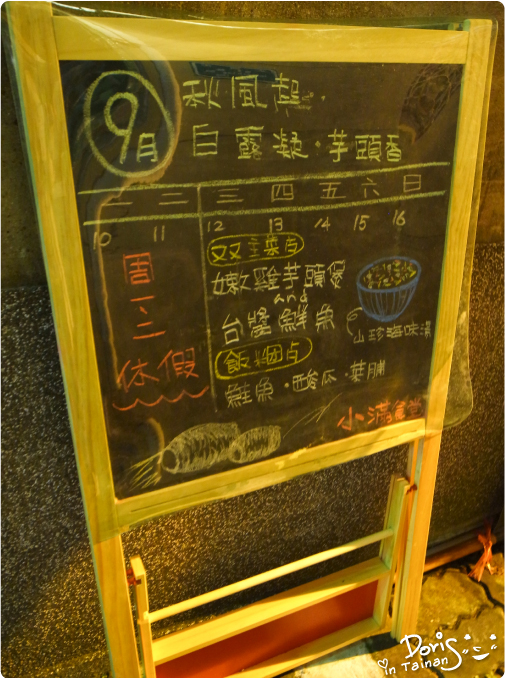 9月
秋風起.
白露凝.芋頭香
一 二 三 四 五 六 日
10 11 12 13 14 15 16
周一、二
休假
双主菜点
嫩雞芋頭煲
and
台醬鮮魚
山珍海味湯
飯捲点
鮭魚.酸瓜.菜脯
小滿食堂
Doris
in Tainan